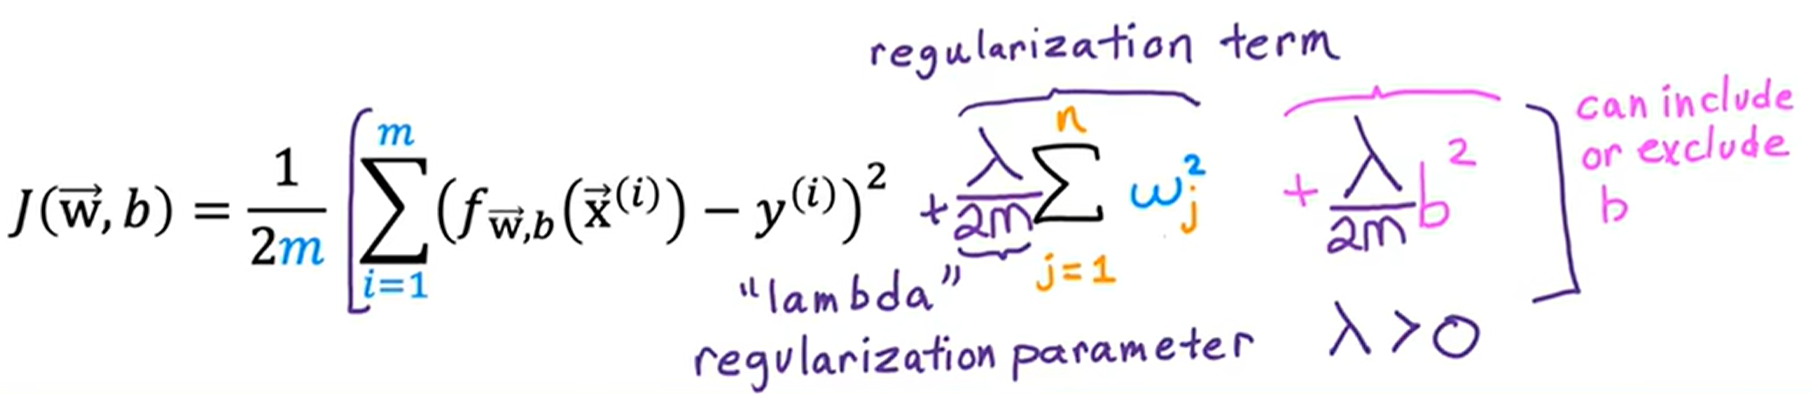 regularization term
J(w⃗, b) = 1/2m [ ∑_{i=1}^{m} (f_{w⃗,b}(x⃗^{(i)}) − y^{(i)})² + λ/2m ∑_{j=1}^{n} w_j² + λ/2m b² ]
can include
or exclude
b
"lambda"
regularization parameter λ > 0